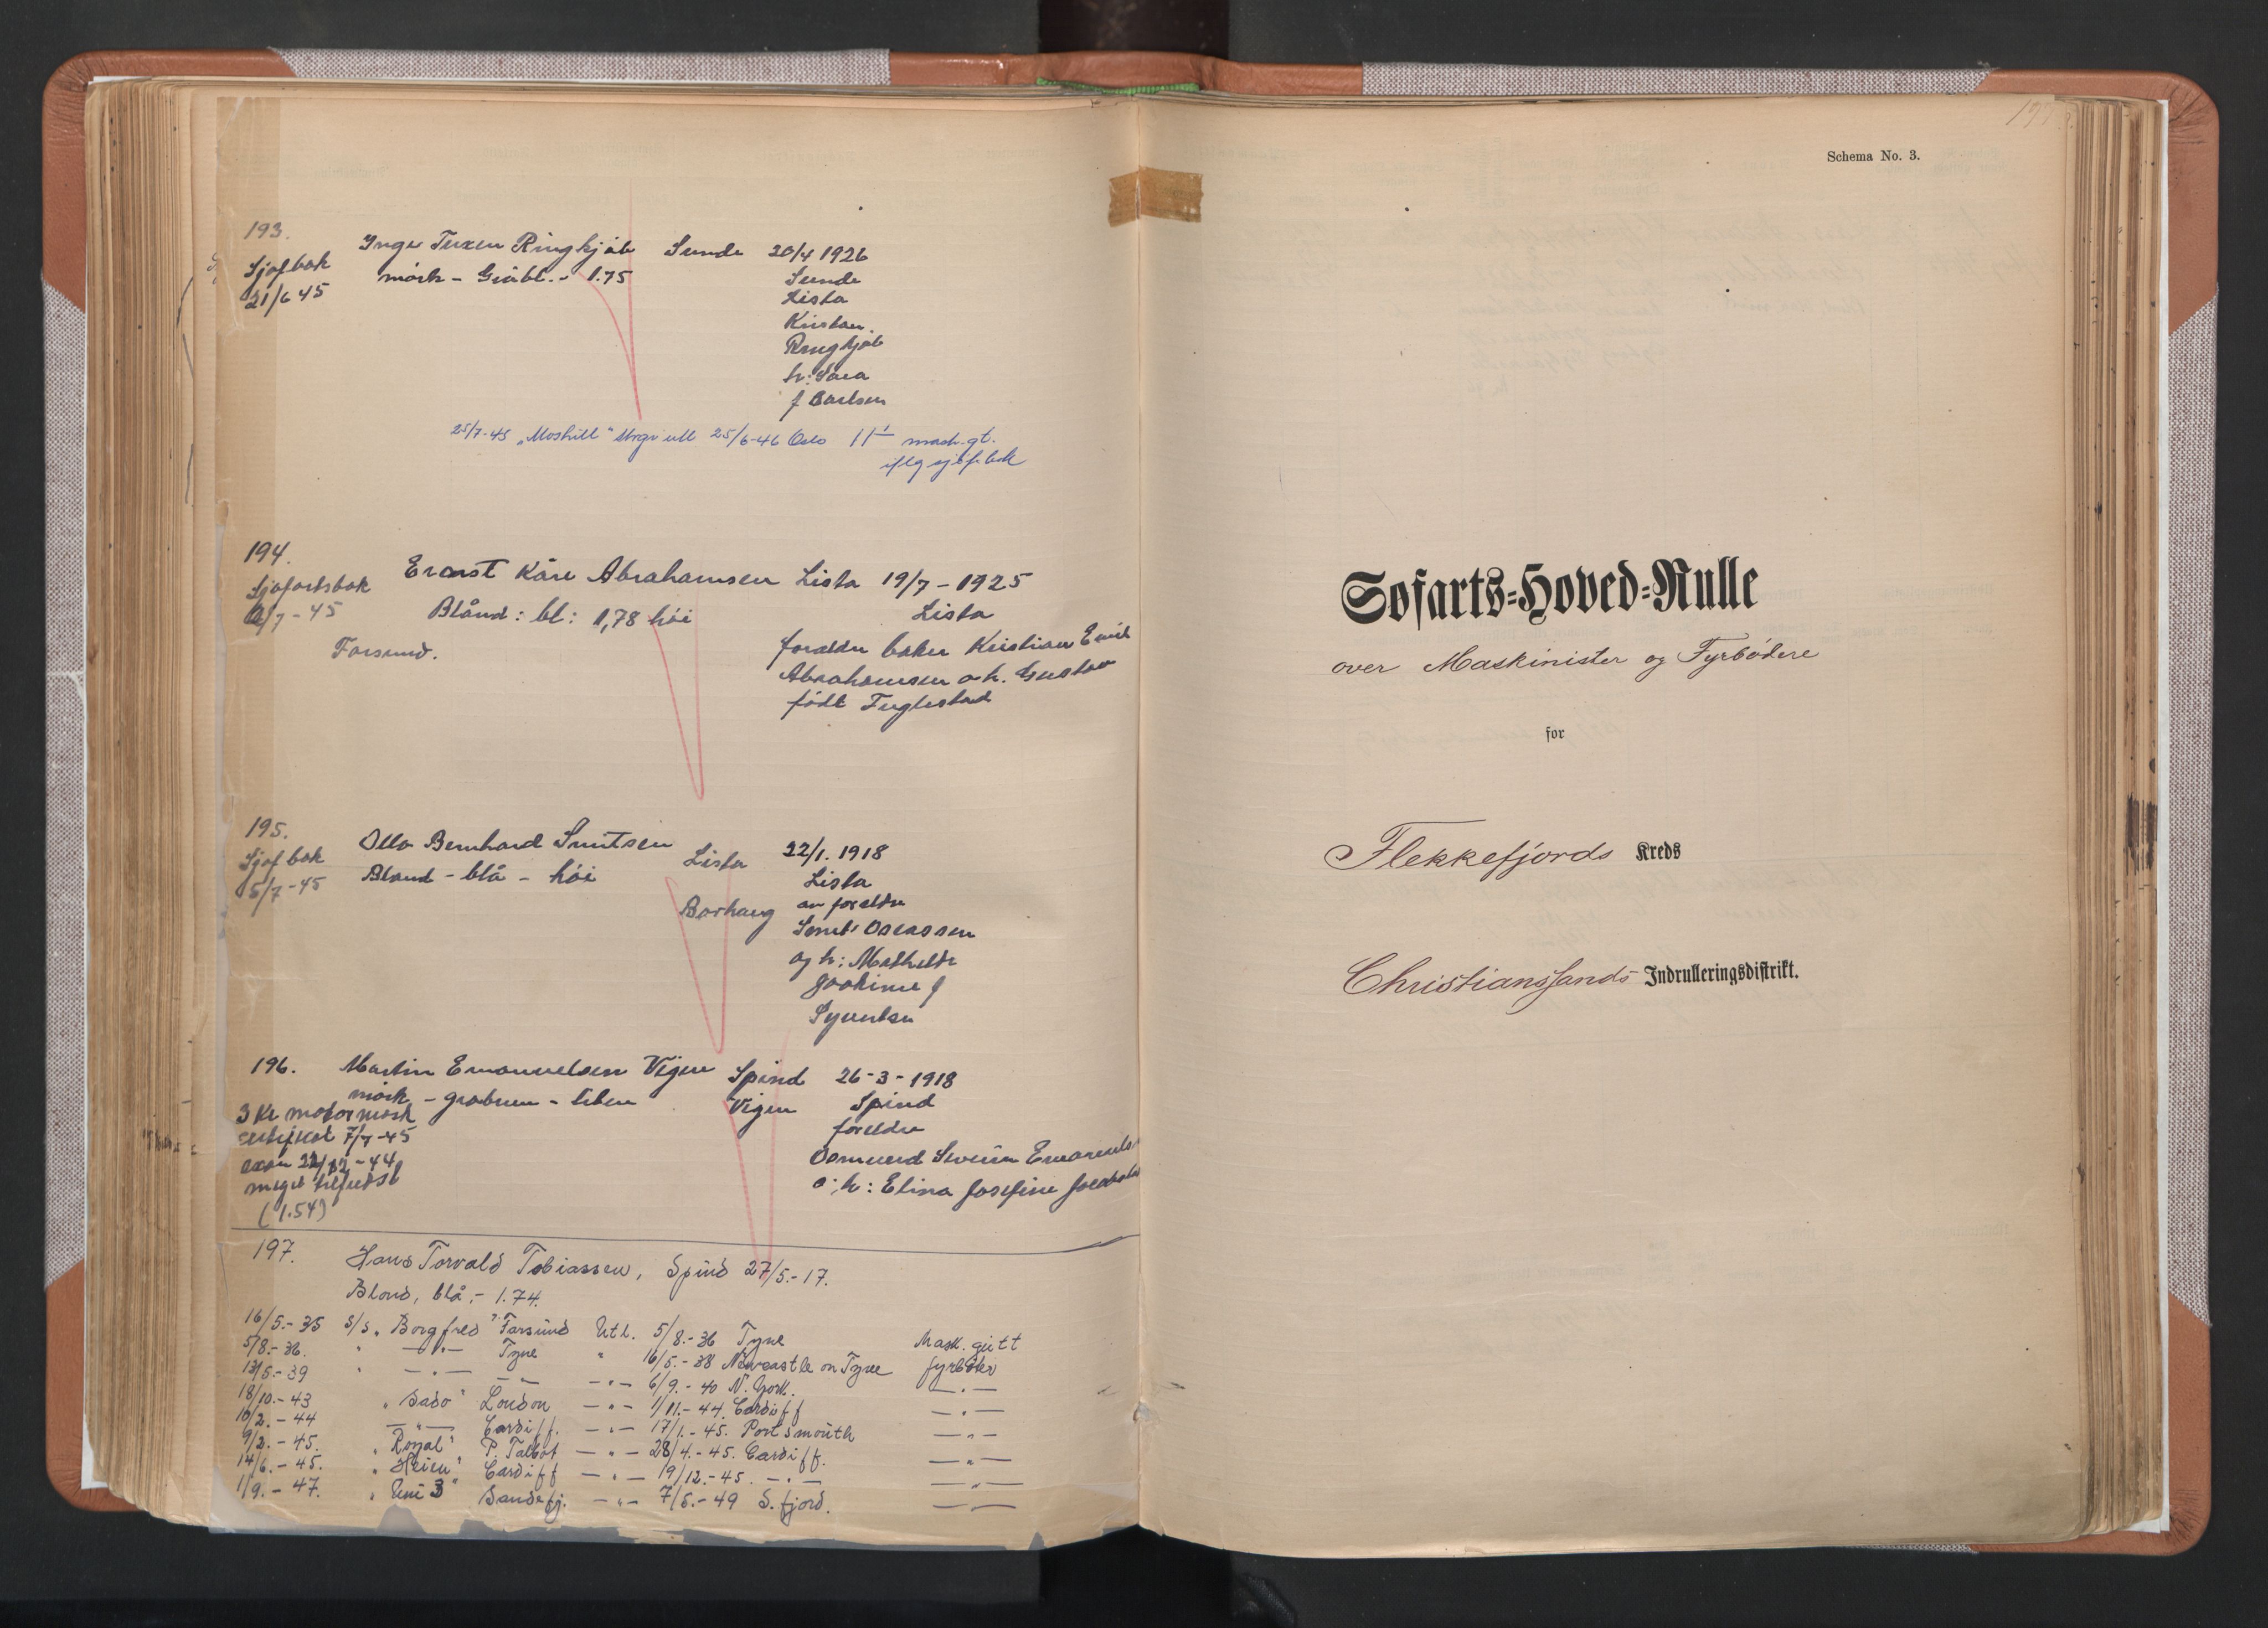 193.
Sjøf bok
21/6 45
Inger Tuxen Ringkjøb Sunde 20/4 1926
mörk - Gråbl. - 1.75
Sunde
Lista
Kristian
Ringkjøb
h: Sara
f Bærlsen
25/7-45 „Moshill" 25/6-46 Oslo 11' mask.gt.
iflg sjøf.bok
194.
Sjøfartsbok
/7-45
Farsund.
Ernst Kåre Abrahamsen Lista 19/7-1925
Blånd: bl: 1,78 höi
Lista
forældre baker Kristian Emil
Abrahamsen o h. Gustav
födt Fuglestad
195.
Sjøf bok
5/7-45
Otto Bernhard Smitsen Lista 22/1. 1918
Bland - blå - höi
Lista
Borhaug av forældre
Oseassen
og h: Mathilde
Joakime f
Syvertsen
196. Martin Emanuelsen Vigen Spind 26-3-1918
mörk - gråbrun - liten Vigen Spind
3 kl motormask
sertifikat 7/7-45
exam 22/12-44
meget tilfredst
(1.54)
foreldre
Osmund Severin Emanuels
o: h: Elina Josefine Jacobsen
197. Hans Torvald Tobiassen, Spind 27/5.-17.
Blond, blå,- 1.74.
16/5.-35 s/s „Borgfred" Farsund Utl. 5/8.-36 Tyne Mask.gutt
5/8.-36. " —"— Tyne " 16/5.-38 Newcastle on Tyne fyrböter
13/5.-39 " —"— —"— —"— 6/9.-40 N. York. —"—
18/10.-43 „Sado" London —"— 1/11.-44. Cardiff —"—
10/2.-44 —"— Cardiff. —"— 17/1.-45. Portsmouth —"—
9/2.-45. „Royal" P. Talbot —"— 28/4.-45. Cardiff. —"—
14/6.-45. „Heien" Cardiff —"— 19/12.-45. —"— —"—
1/9.-47. „Uni 3" Sandefj. —"— 7/5.-49 S.fjord. —"—
Schema No. 3.
Søfarts-Hoved-Rulle
over Maskinister og Fyrbødere
for
Flekkefjords Kreds
Christianssands Indrulleringsdistrikt.